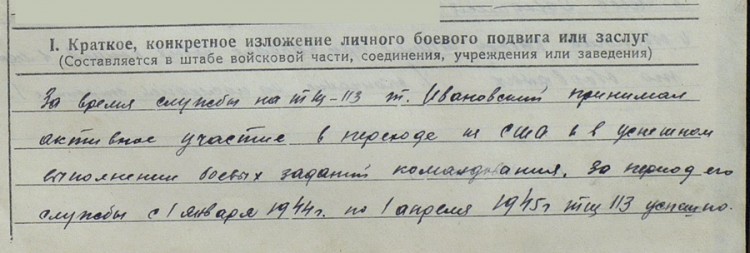 I. Краткое, конкретное изложение личного боевого подвига или заслуг
(Составляется в штабе войсковой части, соединения, учреждения или заведения)
За время службы на тщ-113 т. Ивановский принимал
активное участие в переходе из США и в успешном
выполнении боевых заданий командования. За период его
службы с 1 января 1944г. по 1 апреля 1945г тщ 113 успешно.